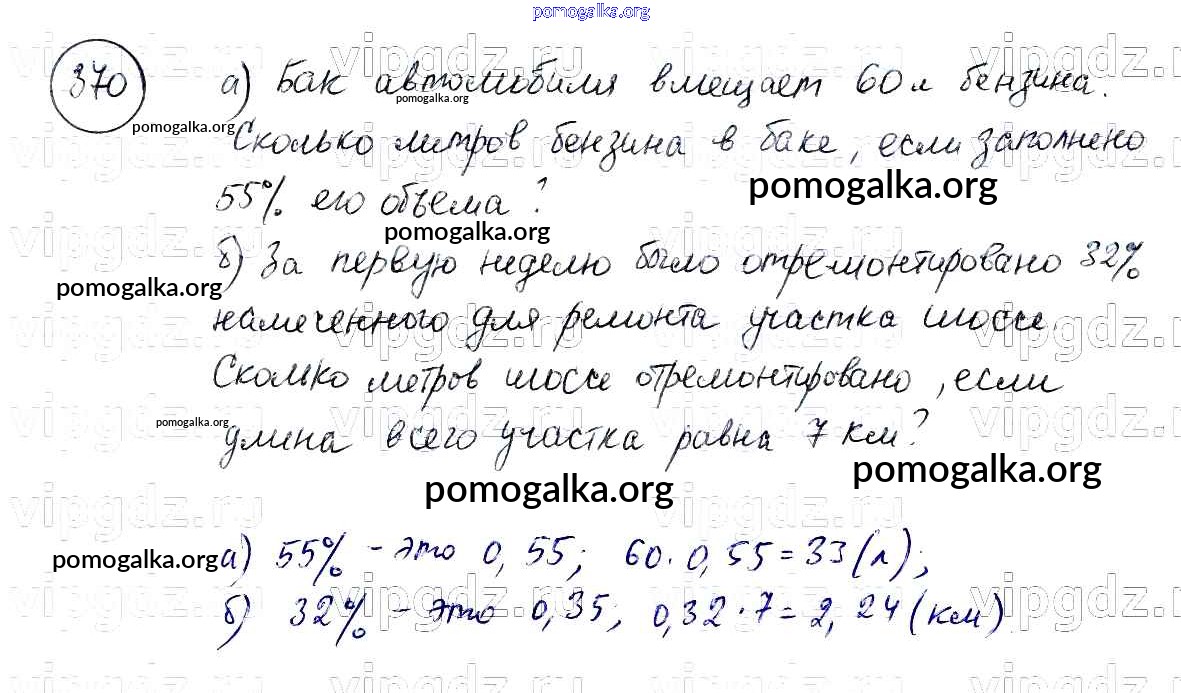 pomogalka.org
370 а) Бак автомобиля вмещает 60 л бензина.
pomogalka.org
pomogalka.org
Сколько литров бензина в баке, если заполнено
pomogalka.org
55% его объема?
pomogalka.org
б) За первую неделю было отремонтировано 32%
pomogalka.org
намеченного для ремонта участка шоссе.
Сколько метров шоссе отремонтировано, если
pomogalka.org
длина всего участка равна 7 км?
pomogalka.org
pomogalka.org
pomogalka.org
а) 55% - это 0,55; 60·0,55=33(л);
б) 32% - это 0,35; 0,32·7=2,24(км)
vipgdz.ru